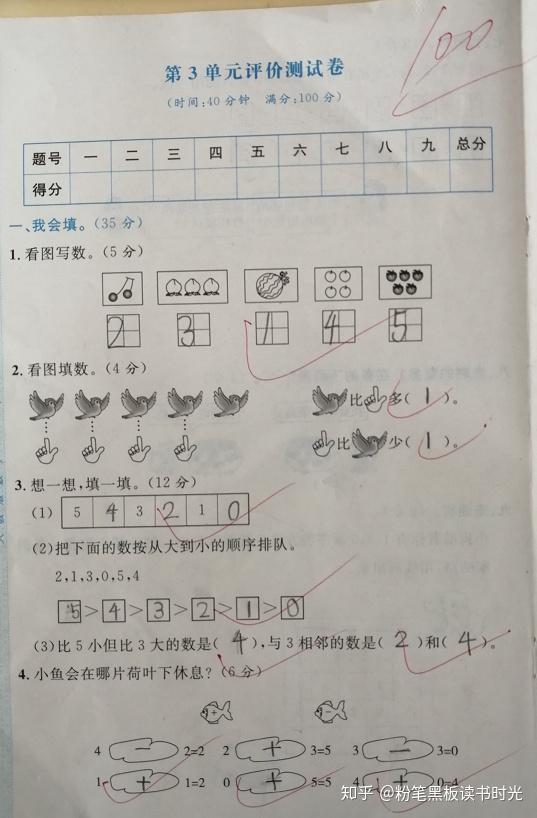 100
第3单元评价测试卷
(时间:40分钟 满分:100分)
题号 一 二 三 四 五 六 七 八 九 总分
得分
一、我会填。(35分)
1.看图写数。(5分)
2 3 1 4 5
2.看图填数。(4分)
比 多( 1 )。
比 少( 1 )。
3.想一想,填一填。(12分)
(1) 5 4 3 2 1 0
(2)把下面的数按从大到小的顺序排队。
2,1,3,0,5,4
5>4>3>2>1>0
(3)比5小但比3大的数是( 4 ),与3相邻的数是( 2 )和( 4 )。
4.小鱼会在哪片荷叶下休息?(6分)
+ −
4 − 2=2 2 + 3=5 3 − 3=0
1 + 1=2 0 + 5=5 4 + 0=4
知乎 @粉笔黑板读书时光